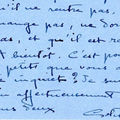 il ne rentre pas,
mange pas, ne do
as, et qu'il est r
A bientôt. C'est po
petits que vous
inquiets? Je su
affectueusement
ous deux